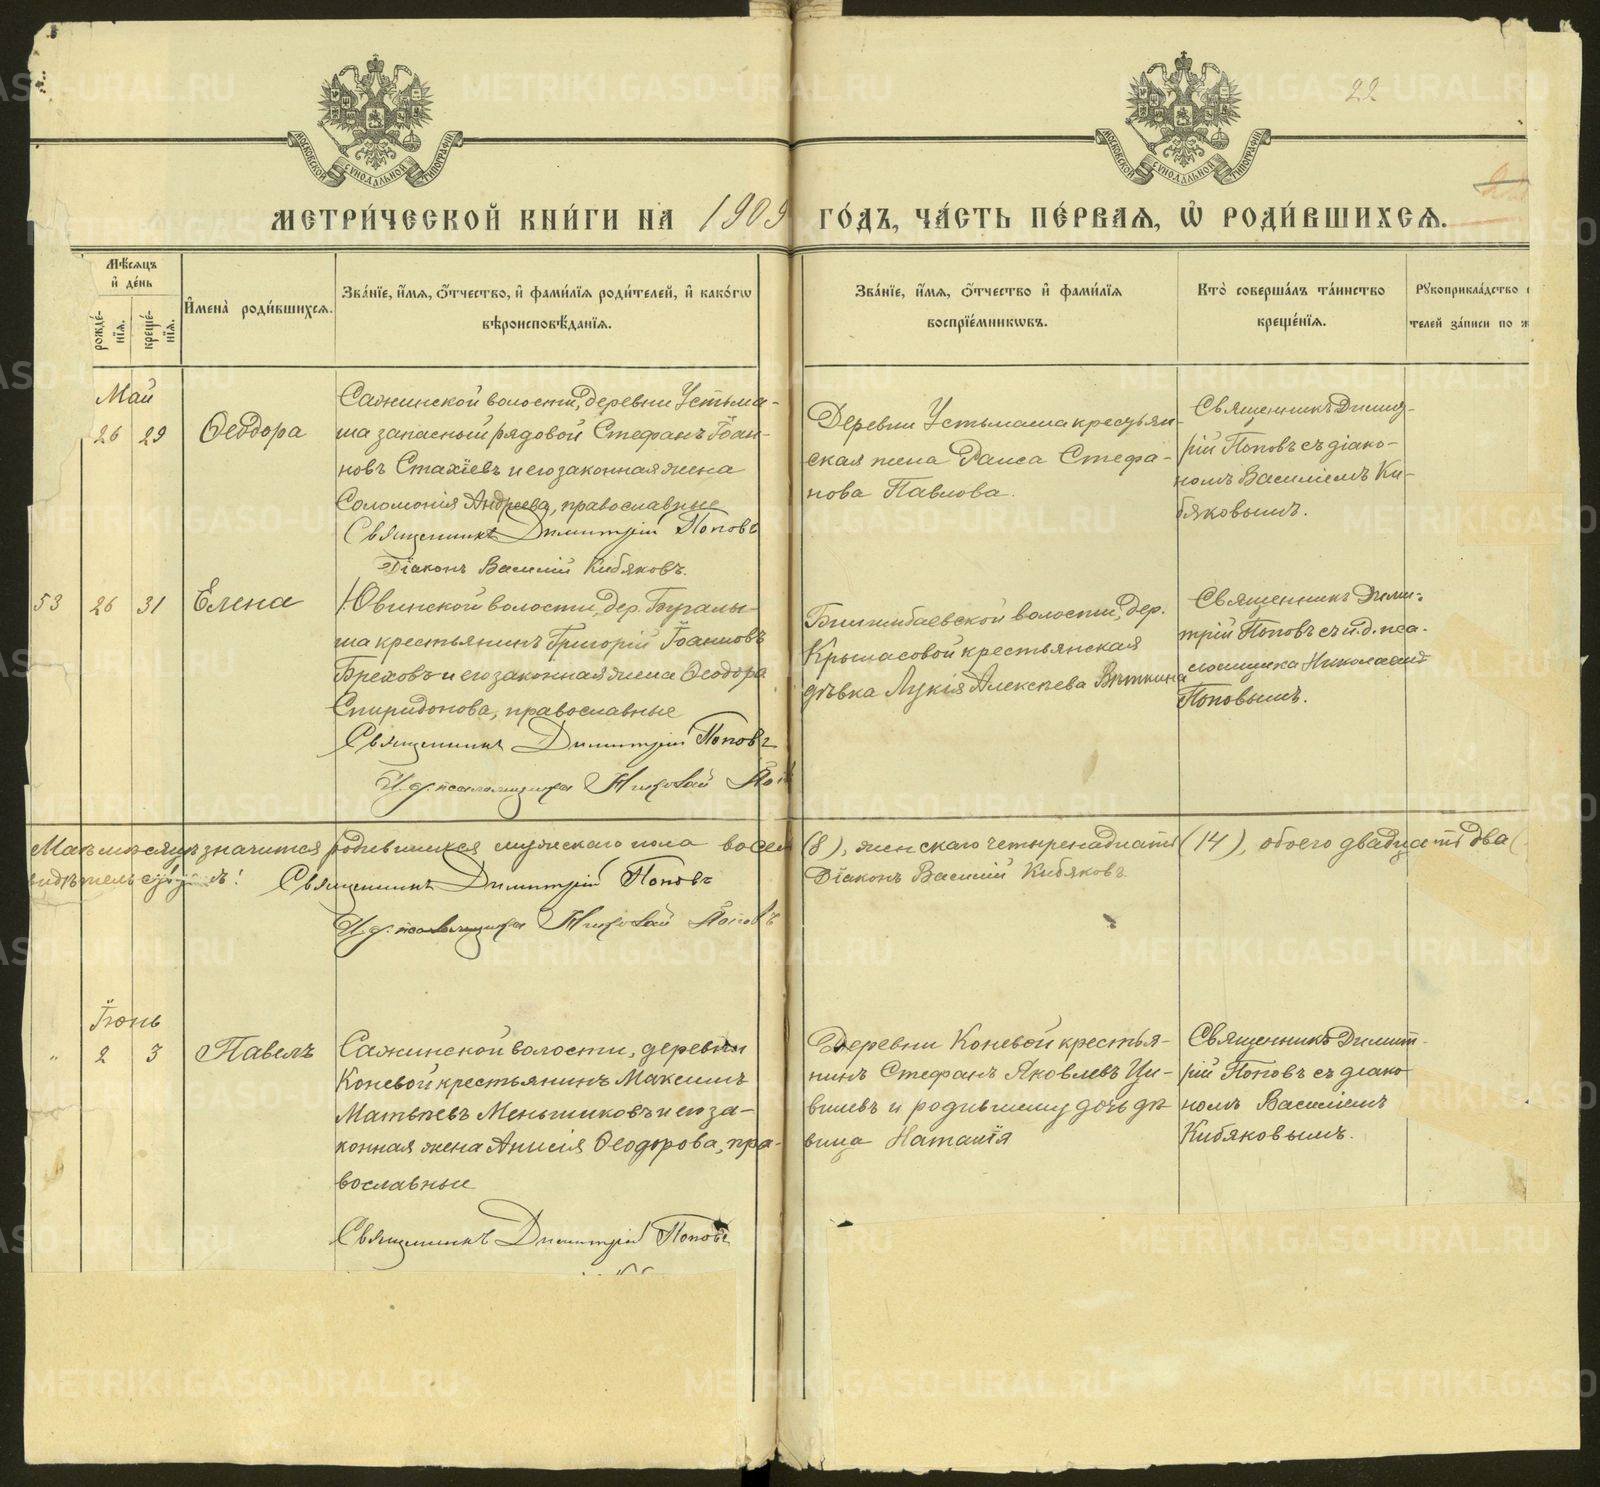 22
МОСКОВСКОЙ СѴНОДАЛЬНОЙ ТИПОГРАФІИ
МОСКОВСКОЙ СѴНОДАЛЬНОЙ ТИПОГРАФІИ
МЕТРИ́ЧЕСКОЙ КНИ́ГИ НА 1909 ГО́ДЪ, ЧА́СТЬ ПЕ́РВАЯ, Ѡ҆ РОДИ́ВШИХСЯ.
Мѣ́сяцъ и҆ де́нь
рожде́-
нїя.
креще́-
нїя.
И҆мена̀ роди́вшихся.
Зва́нїе, и҆́мя, ѻ҆́тчество, и҆ фами́лїя роди́телей, и҆ како́гѡ
вѣроисповѣ́данїя.
Зва́нїе, и҆́мя, ѻ҆́тчество и҆ фами́лїя
воспрїе́мникѡвъ.
Кто̀ соверша́лъ та́инство
креще́нїя.
Рꙋкоприкла́дство с
телей за́писи по ж
Май
26 29 Ѳеодора
Сажинской волости, деревни Устьма-
ша запасный рядовой Стефанъ Іоан-
новъ Стахіевъ и его законная жена
Соломонія Андреева, православные
Священникъ Димитрій Поповъ
Діаконъ Василій Кибяковъ.
Деревни Устьмаша крестьян-
ская жена Раиса Стефа-
нова Павлова.
Священникъ Димит-
рій Поповъ съ діако-
номъ Василіемъ Ки-
бяковымъ.
53 26 31 Елена
Ювинской волости, дер. Бугалы-
ша крестьянинъ Григорій Іоанновъ
Бреховъ и его законная жена Ѳеодора
Спиридонова, православные
Священникъ Димитрій Поповъ
И.д. псаломщика Николай Поп
Бишимбаевской волости, дер.
Крымасовой крестьянская
дѣвка Лукія Алексѣева Вяткина
Священникъ Дими-
трій Поповъ съ и.д. пса-
ломщика Николаемъ
Поповымъ.
Маѣ мѣсяцѣ значится родившихся мужскаго пола восемь (8), женскаго четырнадцать (14), обоего двадцать два (
Священникъ Димитрій Поповъ
Діаконъ Василій Кибяковъ
И.д. псаломщика Николай Поповъ
Іюнь
" 2 3 Павелъ
Сажинской волости, деревни
Коневой крестьянинъ Максимъ
Матвѣевъ Меньшиковъ и его за-
конная жена Анисія Ѳеодорова, пра-
вославные
Священникъ Димитрій Поповъ
Деревни Коневой крестья-
нинъ Стефанъ Яковлевъ Ци-
вилевъ и родившему дочь дѣ
вица Наталія
Священникъ Димит-
рій Поповъ съ діако
номъ Василіемъ
Кибяковымъ.
METRIKI.GASO-URAL.RU